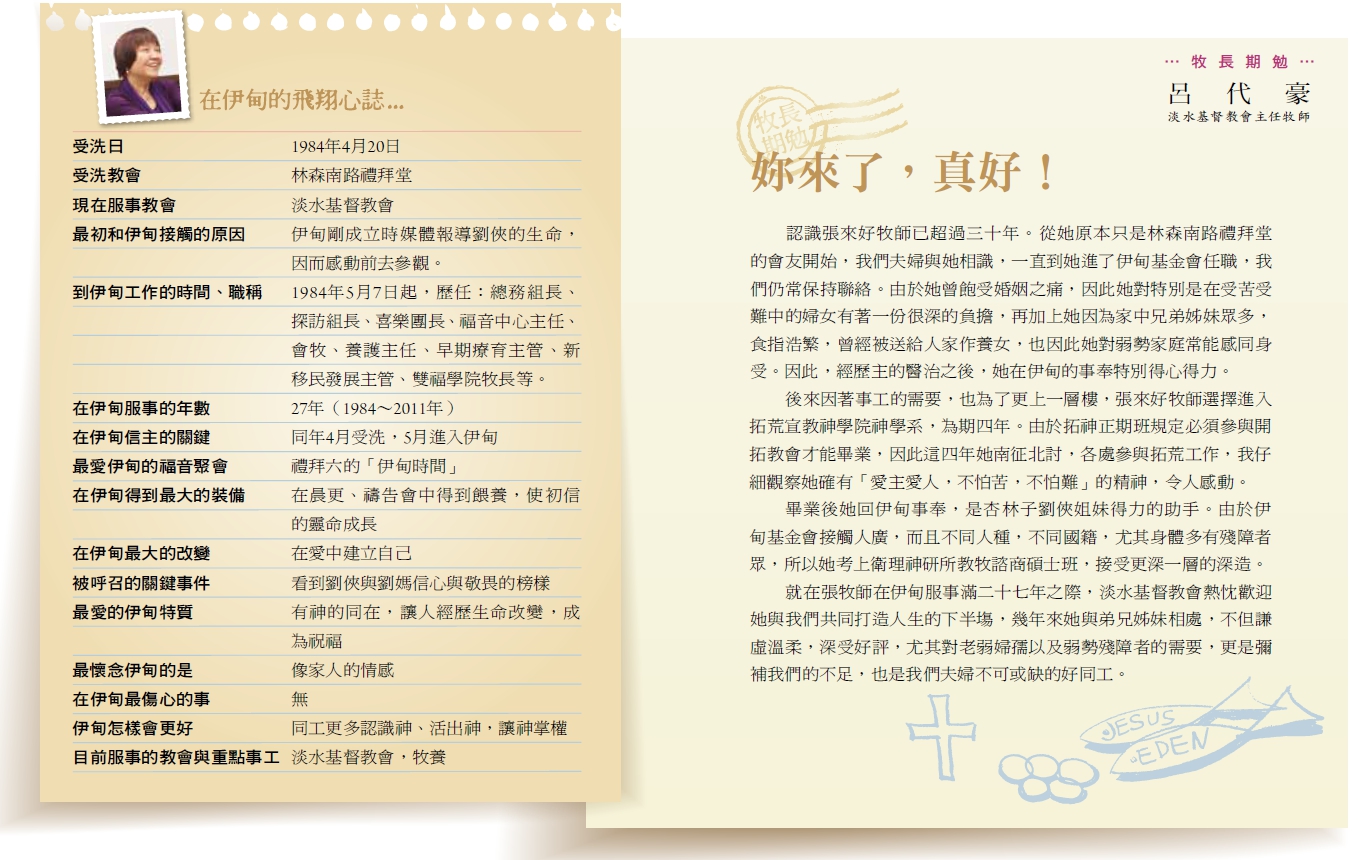 在伊甸的飛翔心誌...
受洗日 1984年4月20日
受洗教會 林森南路禮拜堂
現在服事教會 淡水基督教會
最初和伊甸接觸的原因 伊甸剛成立時媒體報導劉俠的生命，
因而感動前去參觀。
到伊甸工作的時間、職稱 1984年5月7日起，歷任：總務組長、
探訪組長、喜樂團長、福音中心主任、
會牧、養護主任、早期療育主管、新
移民發展主管、雙福學院牧長等。
在伊甸服事的年數 27年（1984～2011年）
在伊甸信主的關鍵 同年4月受洗，5月進入伊甸
最愛伊甸的福音聚會 禮拜六的「伊甸時間」
在伊甸得到最大的裝備 在晨更、禱告會中得到餵養，使初信
的靈命成長
在伊甸最大的改變 在愛中建立自己
被呼召的關鍵事件 看到劉俠與劉媽信心與敬畏的榜樣
最愛的伊甸特質 有神的同在，讓人經歷生命改變，成
為祝福
最懷念伊甸的是 像家人的情感
在伊甸最傷心的事 無
伊甸怎樣會更好 同工更多認識神、活出神，讓神掌權
目前服事的教會與重點事工 淡水基督教會，牧養
… 牧長期勉 …
呂代豪
淡水基督教會主任牧師
牧長
期勉
妳來了，真好！
認識張來好牧師已超過三十年。從她原本只是林森南路禮拜堂
的會友開始，我們夫婦與她相識，一直到她進了伊甸基金會任職，我
們仍常保持聯絡。由於她曾飽受婚姻之痛，因此她對特別是在受苦受
難中的婦女有著一份很深的負擔，再加上她因為家中兄弟姊妹眾多，
食指浩繁，曾經被送給人家作養女，也因此她對弱勢家庭常能感同身
受。因此，經歷主的醫治之後，她在伊甸的事奉特別得心得力。
後來因著事工的需要，也為了更上一層樓，張來好牧師選擇進入
拓荒宣教神學院神學系，為期四年。由於拓神正期班規定必須參與開
拓教會才能畢業，因此這四年她南征北討，各處參與拓荒工作，我仔
細觀察她確有「愛主愛人，不怕苦，不怕難」的精神，令人感動。
畢業後她回伊甸事奉，是杏林子劉俠姐妹得力的助手。由於伊
甸基金會接觸人廣，而且不同人種，不同國籍，尤其身體多有殘障者
眾，所以她考上衛理神研所教牧諮商碩士班，接受更深一層的深造。
就在張牧師在伊甸服事滿二十七年之際，淡水基督教會熱忱歡迎
她與我們共同打造人生的下半場，幾年來她與弟兄姊妹相處，不但謙
虛溫柔，深受好評，尤其對老弱婦孺以及弱勢殘障者的需要，更是彌
補我們的不足，也是我們夫婦不可或缺的好同工。
JESUS
EDEN